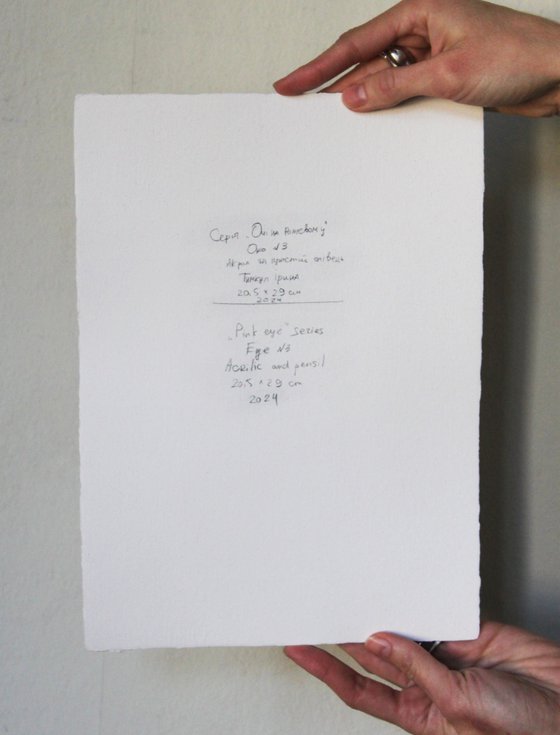 Серія „Очі на рожевому"
Око №3
Акрил та простий олівець
Ірина
20.5 × 29 см
2024
„Pink eye" series
Eye №3
Acrilic and pensil
20.5 × 29 cm
2024